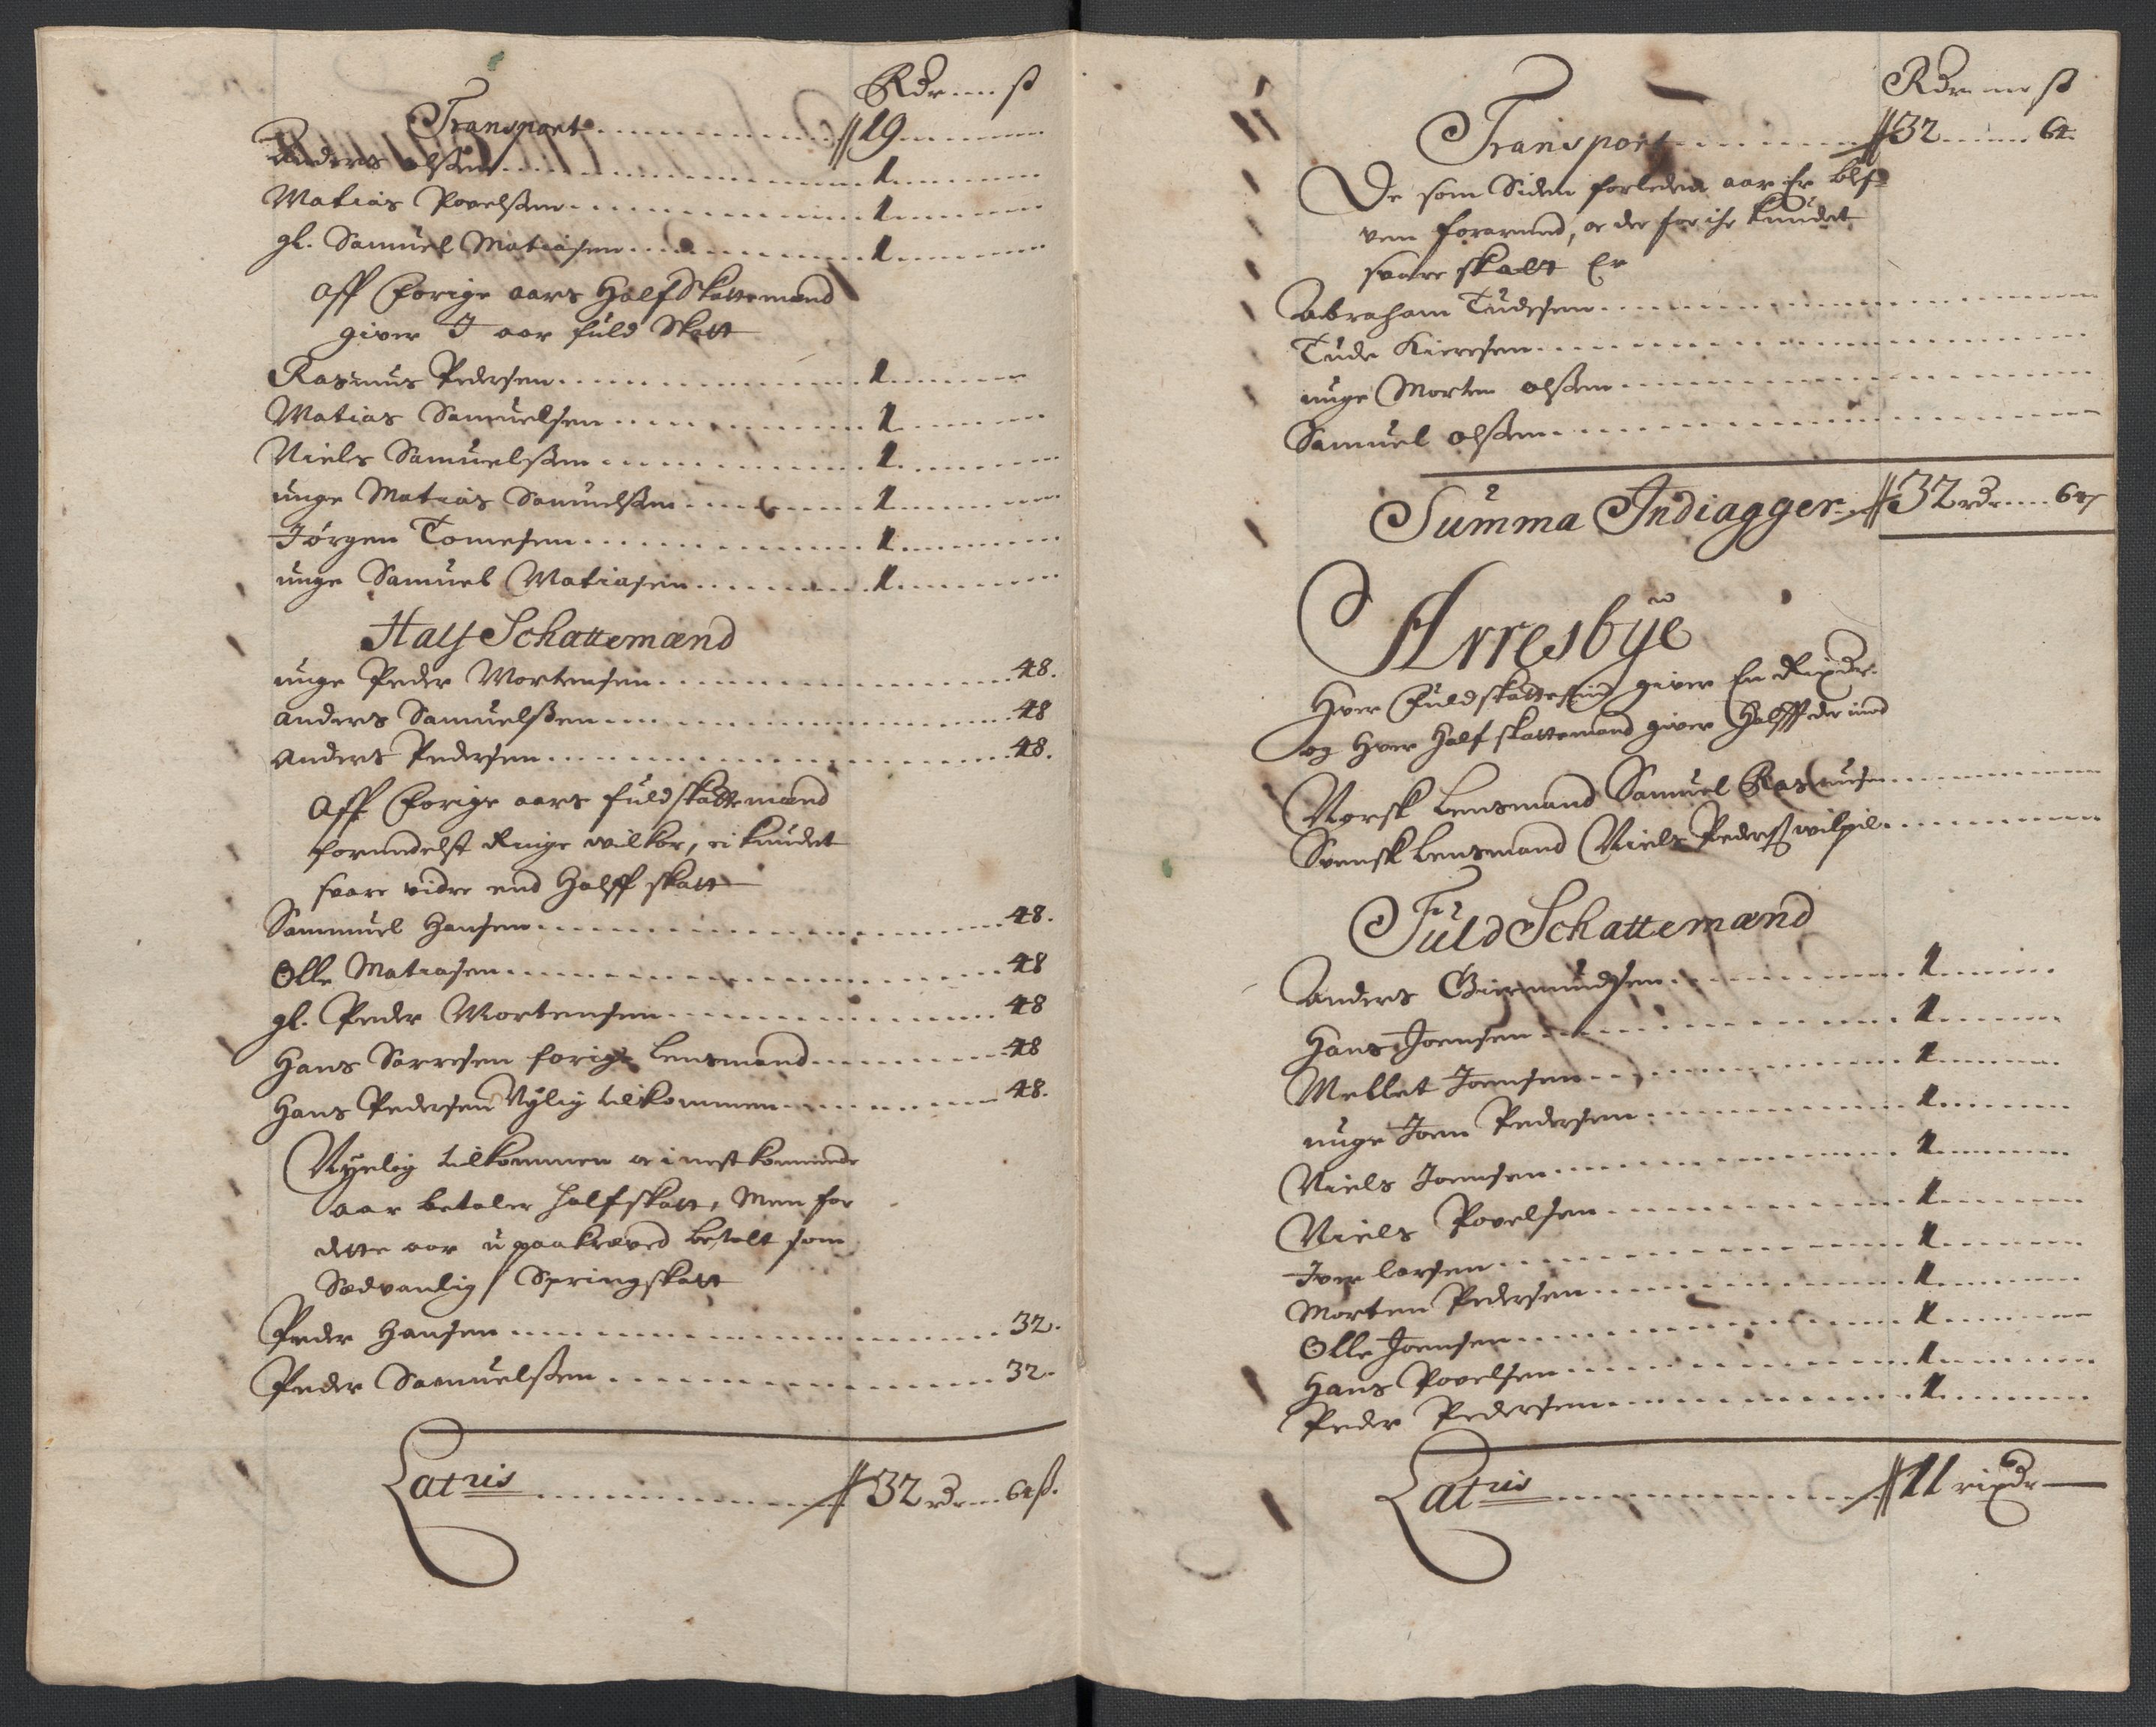 Rdr ß
Transport 19
Anders olßen 1
Matias Povelßen 1
gl. Samuel Matiasen 1
Aff Forige aars Half Skattemænd
giver I aar fuld Skatt
Rasmus Pedersen 1
Matias Samuelsen 1
Niels Samuelßen 1
unge Matias Samuelßen 1
Jørgen Tomesen 1
unge Samuel Matiasen 1
Half Schattemænd
unge Peder Mortensen 48.
Anders Samuelßen 48
Anders Pedersen 48.
Aff Forige aars fuldskattemænd
formedelst Ringe wilkor, ei kundet
svare vidre end Halff skatt
Sammuel Hansen 48.
Olle Matiasen 48
gl. Peder Mortensen 48
Hans Sarresen forige Lensmand 48
Hans Pedersen Nylig tilkommen 48.
Nyelig tilkommen oc i nestkommende
aar betaler halfskatt, Men for
dette aar u paakræved betalt som
Sædvanlig Springskatt
Peder Hansen 32.
Peder Samuelßen 32.
Latris 32 rdr 64 ß.
Rdr ß
Transport 32 64.
De som Siden forleden aar Er blef-
ven forarmed, oc der for ihe kundet
svare skatt Er
Abraham Tudesen
Tude Kieresen
unge Morten olßen
Samuel olßen
Summa Indiagger 32 rdr 64
Arresbye
Hver Fuldskattesmd giver En Rixdr.
og Hver Half skattemand giver Halff der imod
Norsk Lensmand Samuel Rasmusen
Svensk Lensmand Niels Pederß wilpil
Fuld Schattemænd
Anders Giermundsen 1
Hans Joensen 1
Mellet Joensen 1
unge Joen Pedersen 1
Niels Joensen 1
Niels Povelsen 1
Iver Larsen 1
Morten Pedersen 1
Olle Joensen 1
Hans Povelsen 1
Peder Pedersen 1
Latris 11 rixdr